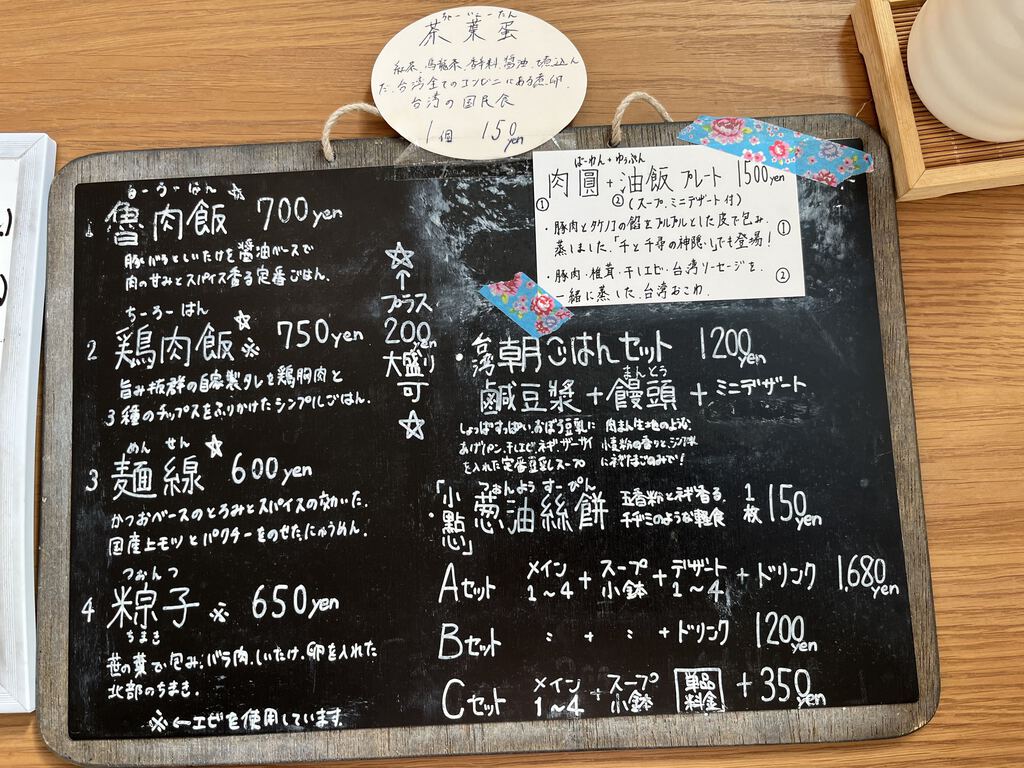 ちーいえーたん
茶葉蛋
紅茶、烏龍茶、香料、醤油で煮込ん
だ、台湾全てのコンビニにある煮卵.
台湾の国民食
1個 150yen
るーろーはん ☆
魯肉飯 700yen
豚バラとしいたけを醤油ベースで
肉の甘みとスパイス香る定番ごはん.
ちーろーはん
2 鶏肉飯☆※ 750yen
旨み抜群の自家製タレを鶏胸肉と
3種のチップスをふりかけたシンプルごはん.
めんせん ☆
3 麺線 600yen
かつおベースのとろみとスパイスの効いた.
国産上モツとパクチーをのせたにゅうめん.
つぉんつ
4 粽子※ 650yen
ちまき
笹の葉で包み、バラ肉、しいたけ、卵を入れた
北部のちまき.
※←エビを使用しています.
☆
↑
プラス
200yen
大盛り
可
☆
ばーわん+ゆぅふぁん
肉圓+油飯 プレート 1500yen
① ②(スープ、ミニデザート付)
・豚肉とタケノコの餡をプルプルとした皮で包み、
蒸しました.「千と千尋の神隠し」でも登場! ①
・豚肉・椎茸・干しエビ・台湾ソーセージを.
一緒に蒸した.台湾おこわ. ②
・台湾朝ごはんセット 1200yen
まんとう
鹹豆漿+饅頭+ミニデザート
しょっぱすっぱい、おぼろ豆乳に
あげパン、干しエビ、ネギ、ザーサイ
を入れた定番豆乳スープ
肉まん生地のような、
小麦粉の香りと、シンプル
つぉんようすーぴん
・「小點心」葱油絲餅 五香粉とネギ香る、 1枚 150yen
チヂミのような軽食
Aセット メイン1~4 + スープ小鉢 + デザート1~4 + ドリンク 1,680yen
Bセット 〃 + 〃 + ドリンク 1200yen
Cセット メイン1~4 + スープ小鉢 単品料金 + 350yen